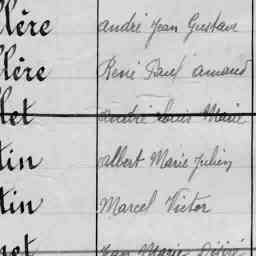 llère André Jean Gustave
llère René Paul Armand
llet André Louis Marie
tin Albert Marie Julien
tin Marcel Victor
net Jean Marie Désiré